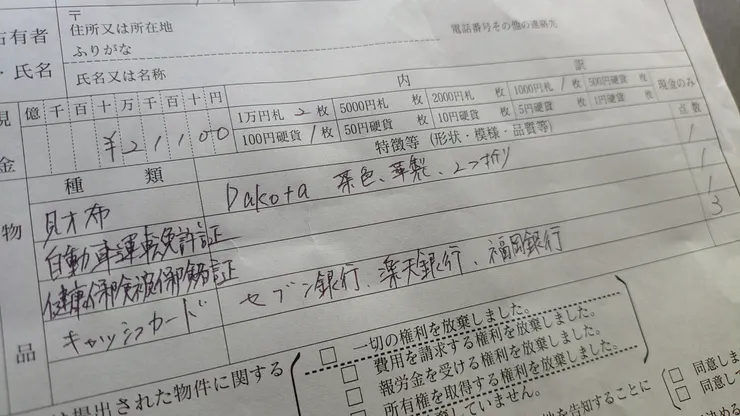 〒
住所又は所在地
電話番号その他の連絡先
ふりがな
占有者
・氏名
氏名又は名称
現金
億 千 百 十 万 千 百 十 円
¥21,100
内 訳
1万円札 2 枚 5000円札 枚 2000円札 枚 1000円札 1 枚 500円硬貨 枚
100円硬貨 1 枚 50円硬貨 枚 10円硬貨 枚 5円硬貨 枚 1円硬貨 枚
現金のみ
物品
種類
特徴等(形状・模様・品質等)
点数
財布 Dakota 茶色、革製、2つ折り 1
自動車運転免許証 1
健康保険被保険者証 1
キャッシュカード セブン銀行、楽天銀行、福岡銀行 3
提出された物件に関する
□ 一切の権利を放棄しました。
□ 費用を請求する権利を放棄しました。
□ 報労金を受ける権利を放棄しました。
□ 所有権を取得する権利を放棄しました。
していません。
を告知することに
□ 同意しま
□ 同意し